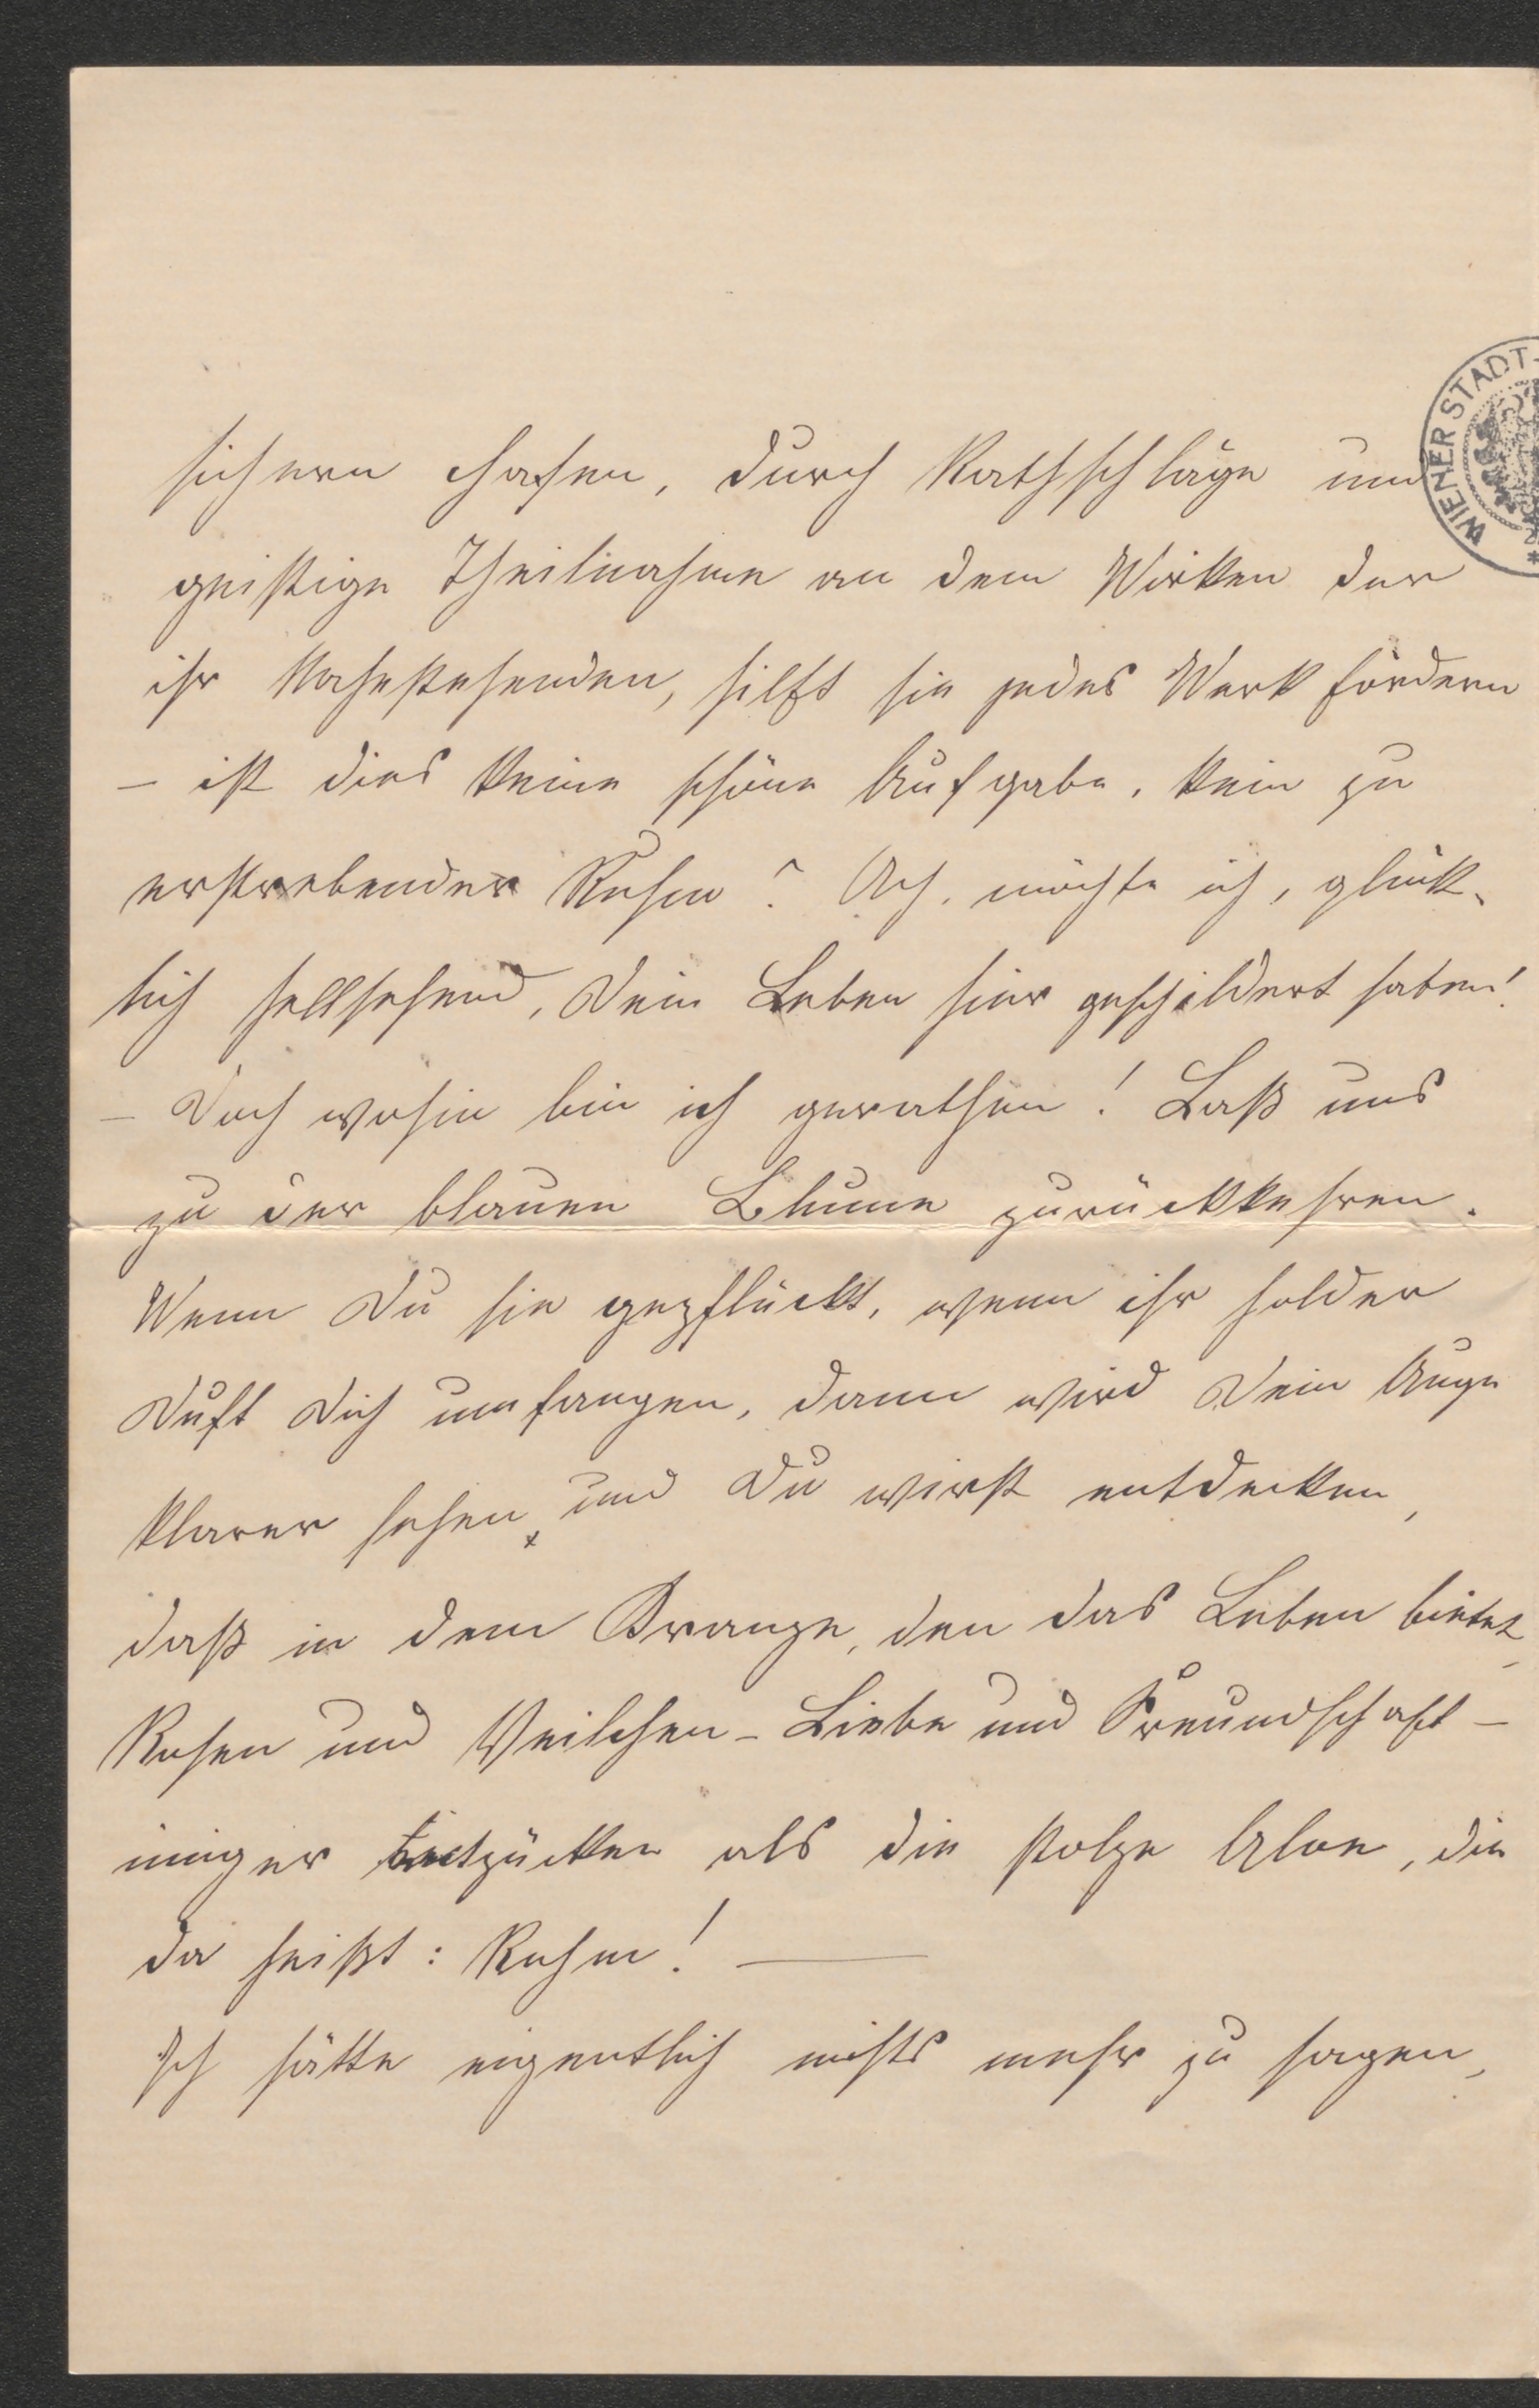 sichern Hafen, durch Rathschläge und
geistige Theilnahme an dem Wirken der
ihr Nahestehenden, hilft sie jedes Werk fördern
– ist dies keine schöne Aufgabe, kein zu
erstrebender Ruhm? Ach, möchte ich, glück-
lich hellsehend, Dein Leben hier geschildert haben!
– Doch wohin bin ich gerathen! Laß uns
zu der blauen Blume zurückkehren.
Wenn Du sie gepflückt, wenn ihr holder
Duft Dich umfangen, dann wird Dein Auge
klarer sehen, und Du wirst entdecken,
daß in dem Kranze, den das Leben bietet,
Rosen und Veilchen – Liebe und Freundschaft –
inniger entzücken als die stolze Aloe, die
da heißt: Ruhm! —
Ich hätte eigentlich nichts mehr zu sagen,
WIENER STADT-